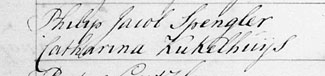 Philip Jacob Spengler
Catharina Zukelhuijs